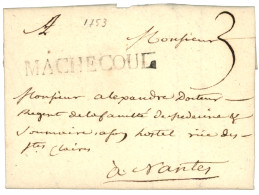 1753
Monsieur
3
MÂCHECOUL
Monsieur alexandre Docteur
Regent de la faculté de medecine &
Sommaire, a son hostel rüe des
stes claires
à Nantes